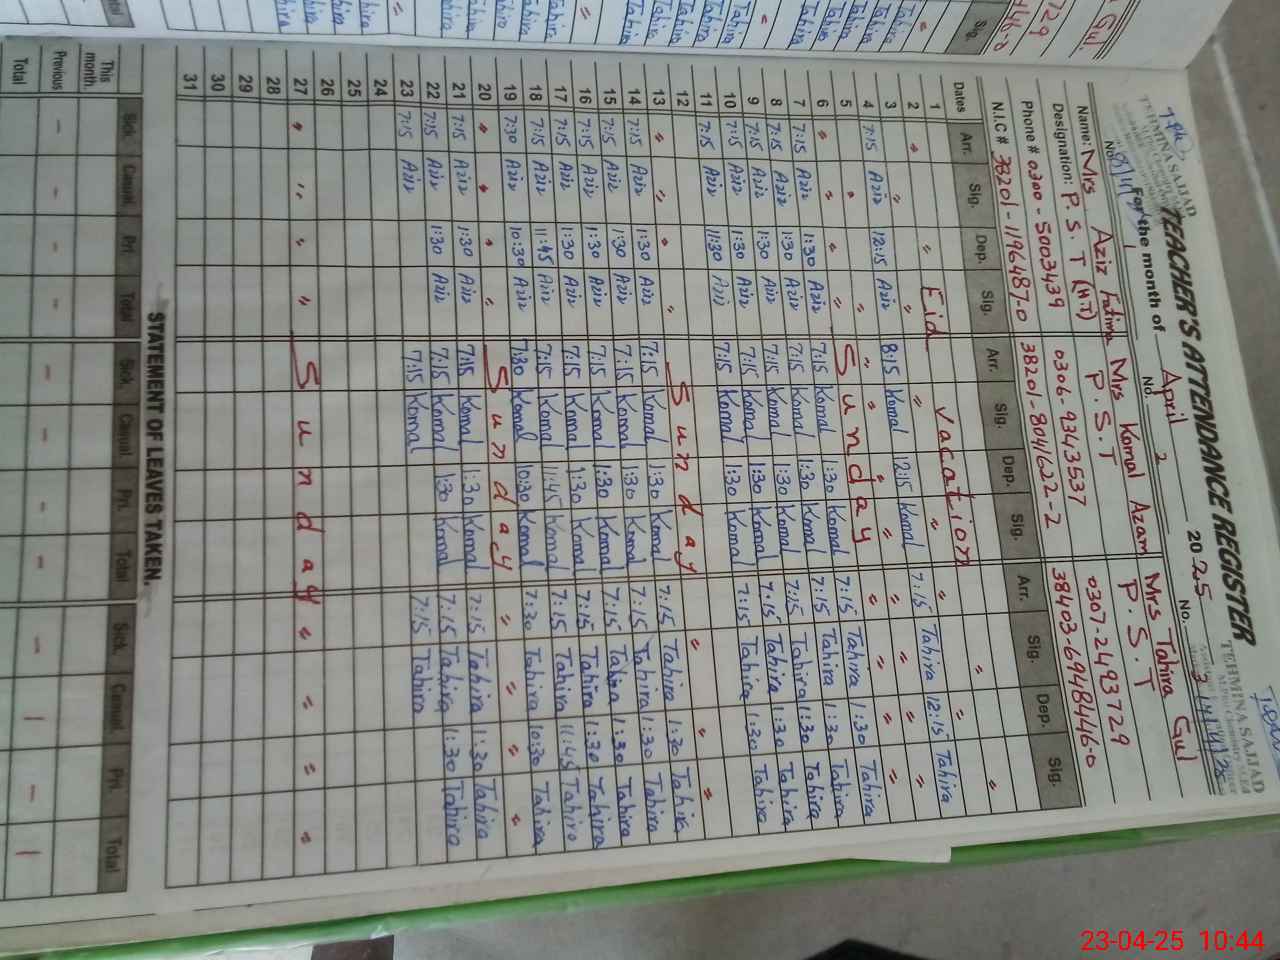 TEACHER'S ATTENDANCE REGISTER
For the month of April 2025
TEHMINA SAJJAD
TEHMINA SAJJAD
No. 1 No. 2 No. 3
Name: Mrs Aziz Fatima Mrs Komal Azam Mrs Tahira Gul
Designation: P.S.T (H.T) P.S.T P.S.T
Phone # 0300-5003439 0306-9343537 0307-2493729
N.I.C # 38201-1196487-0 38201-8041622-2 38403-6948446-0
Dates Arr. Sig. Dep. Sig. Arr. Sig. Dep. Sig. Arr. Sig. Dep. Sig.
1 Eid vacation
2 " " " " " " " " " "
3 " " " " " " " "
4 7:15 Aziz 12:15 Aziz 8:15 Komal 12:15 Komal 7:15 Tahira 12:15 Tahira
5 " " " " " " " "
6 " " " " Sunday " " " "
7 7:15 Aziz 1:30 Aziz 7:15 Komal 1:30 Komal 7:15 Tahira 1:30 Tahira
8 7:15 Aziz 1:30 Aziz 7:15 Komal 1:30 Komal 7:15 Tahira 1:30 Tahira
9 7:15 Aziz 1:30 Aziz 7:15 Komal 1:30 Komal 7:15 Tahira 1:30 Tahira
10 7:15 Aziz 1:30 Aziz 7:15 Komal 1:30 Komal 7:15 Tahira 1:30 Tahira
11 7:15 Aziz 11:30 Aziz 7:15 Komal 1:30 Komal 7:15 Tahira 1:30 Tahira
12
13 " " " " Sunday " " "
14 7:15 Aziz 1:30 Aziz 7:15 Komal 1:30 Komal 7:15 Tahira 1:30 Tahira
15 7:15 Aziz 1:30 Aziz 7:15 Komal 1:30 Komal 7:15 Tahira 1:30 Tahira
16 7:15 Aziz 1:30 Aziz 7:15 Komal 1:30 Komal 7:15 Tahira 1:30 Tahira
17 7:15 Aziz 1:30 Aziz 7:15 Komal 1:30 Komal 7:15 Tahira 1:30 Tahira
18 7:15 Aziz 11:45 Aziz 7:15 Komal 11:45 Komal 7:15 Tahira 11:45 Tahira
19 7:30 Aziz 10:30 Aziz 7:30 Komal 10:30 Komal 7:30 Tahira 10:30 Tahira
20 " " " " Sunday " " " "
21 7:15 Aziz 1:30 Aziz 7:15 Komal 1:30 Komal 7:15 Tahira 1:30 Tahira
22 7:15 Aziz 1:30 Aziz 7:15 Komal 1:30 Komal 7:15 Tahira 1:30 Tahira
23 7:15 Aziz 7:15 Komal 7:15 Tahira
24
25
26
27 " " " " Sunday " " " "
28
29
30
31
STATEMENT OF LEAVES TAKEN.
Sick. Casual. Pri. Total Sick. Casual. Pri. Total Sick. Casual. Pri. Total
This month.
Previous – – – – – – – – – 1 – 1
Total
23-04-25 10:44